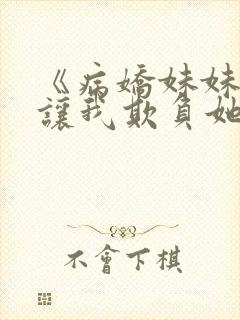 《病嬌妹妹
讓我欺負她
不會下棋